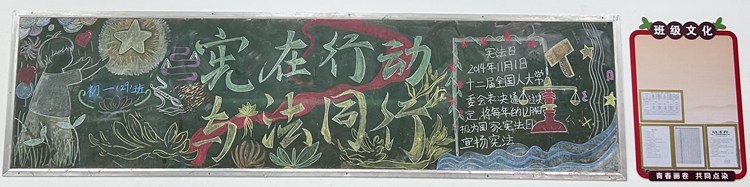 宪在行动
与法同行
初一129班
宪法日
2014年11月1日
十二届全国人大常
委会表决通过决
定,将每年的12月4日
设为国家宪法日
宣扬宪法
班级文化
青春画卷 共同点染